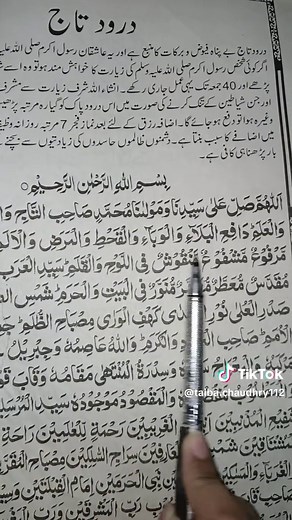 درود تاج
درود تاج بے پناہ فیوض و برکات کا منبع ہے اور یہ عاشقان رسول اکرم صلی اللہ علیہ
اگر کوئی شخص رسول اکرم صلی اللہ علیہ وسلم کی زیارت کا خواہش مند ہو تو وہ اسے
پڑھے اور 40 جمعہ تک یہی عمل جاری رکھے۔ انشاء اللہ شرف زیارت سے مشرف
اور جن شیاطین کے تنگ کرنے کی صورت میں اس درود پاک کو گیارہ مرتبہ پڑھیں
وغیرہ ہوا تو دفع ہو جائے گا۔ اضافہ رزق کے لئے بعد نماز فجر 7 مرتبہ روزانہ وظیفہ
میں اضافے کا سبب بنتا ہے۔ دشمنوں ظالموں حاسدوں کی زیادتیوں سے بچنے
بار پڑھنا ہی کافی ہے۔
بِسْمِ اللّٰهِ الرَّحْمٰنِ الرَّحِيْمِ
اَللّٰهُمَّ صَلِّ عَلٰى سَيِّدِنَا وَمَوْلٰنَا مُحَمَّدٍ صَاحِبِ التَّاجِ وَالْ
وَالْعَلَمِ دَافِعِ الْبَلَآءِ وَالْوَبَآءِ وَالْقَحْطِ وَالْمَرَضِ وَالْاَلَمِ
مَرْفُوْعٌ مَشْفُوْعٌ مَنْقُوْشٌ فِي اللَّوْحِ وَالْقَلَمِ سَيِّدِ الْعَرَبِ
مُقَدَّسٌ مُعَطَّرٌ مُنَوَّرٌ فِي الْبَيْتِ وَالْحَرَمِ شَمْسِ الضُّ
صَدْرِ الْعُلٰى نُوْرِ الْهُدٰى كَهْفِ الْوَرٰى مِصْبَاحِ الظُّلَمِ جَ
الْاُمَمِ صَاحِبِ الْجُوْدِ وَالْكَرَمِ وَاللّٰهُ عَاصِمُهٗ وَجِبْرِيْلُ
وَسِدْرَةُ الْمُنْتَهٰى مَقَامُهٗ وَقَابَ قَوْ
وَالْمَقْصُوْدُ مَوْجُوْدُهٗ سَيِّدِ الْمُرْسَلِيْنَ
شَفِيْعِ الْمُذْنِبِيْنَ اَنِيْسِ الْغَرِيْبِيْنَ رَحْمَةٍ لِّلْعٰلَمِيْنَ رَاحَةِ
الْعَارِفِيْنَ سِرَاجِ السَّالِكِيْنَ مِصْبَاحِ الْمُقَرَّبِ
نَبِيِّ الْحَرَمَيْنِ اِمَامِ الْقِبْلَتَيْنِ وَسِيْ
TikTok
@taiba.chaudhry112